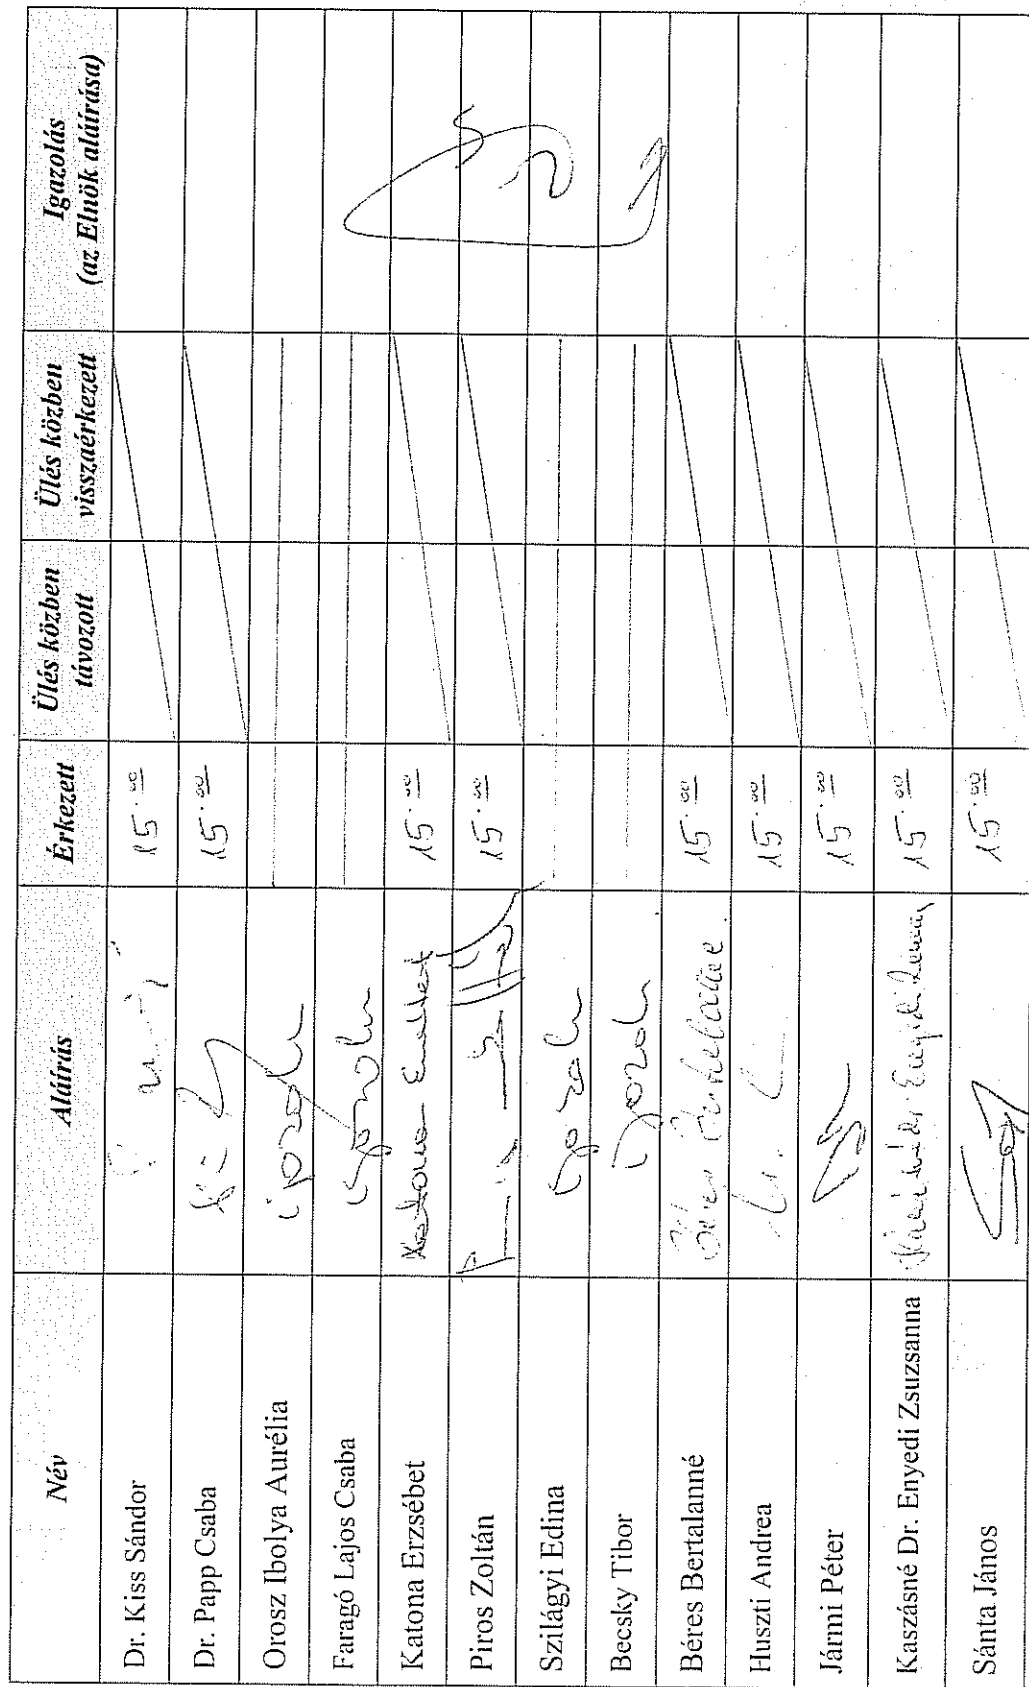 Név Aláírás Érkezett Ülés közben távozott Ülés közben visszaérkezett Igazolás (az Elnök aláírása)
Dr. Kiss Sándor 15.00
Dr. Papp Csaba 15.00
Orosz Ibolya Aurélia igazolt
Faragó Lajos Csaba igazolt
Katona Erzsébet Katona Erzsébet 15.00
Piros Zoltán 15.00
Szilágyi Edina igazolt
Becsky Tibor igazolt
Béres Bertalanné Béres Bertalanné 15.00
Huszti Andrea 15.00
Jármi Péter 15.00
Kaszásné Dr. Enyedi Zsuzsanna 15.00
Sánta János 15.00